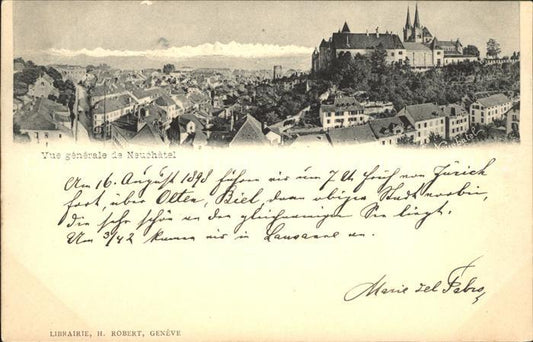 Vue générale de Neuchâtel
Am 16. August 1898 fuhren wir um 7 U. früh von Zürich
fort, über Olten, Biel, dann obiger Stadt vorbei,
die sehr schön an den gleichnamigen See liegt.
Um 3/42 kamen wir in Lausanne an.
Marie
LIBRAIRIE, H. ROBERT, GENÈVE